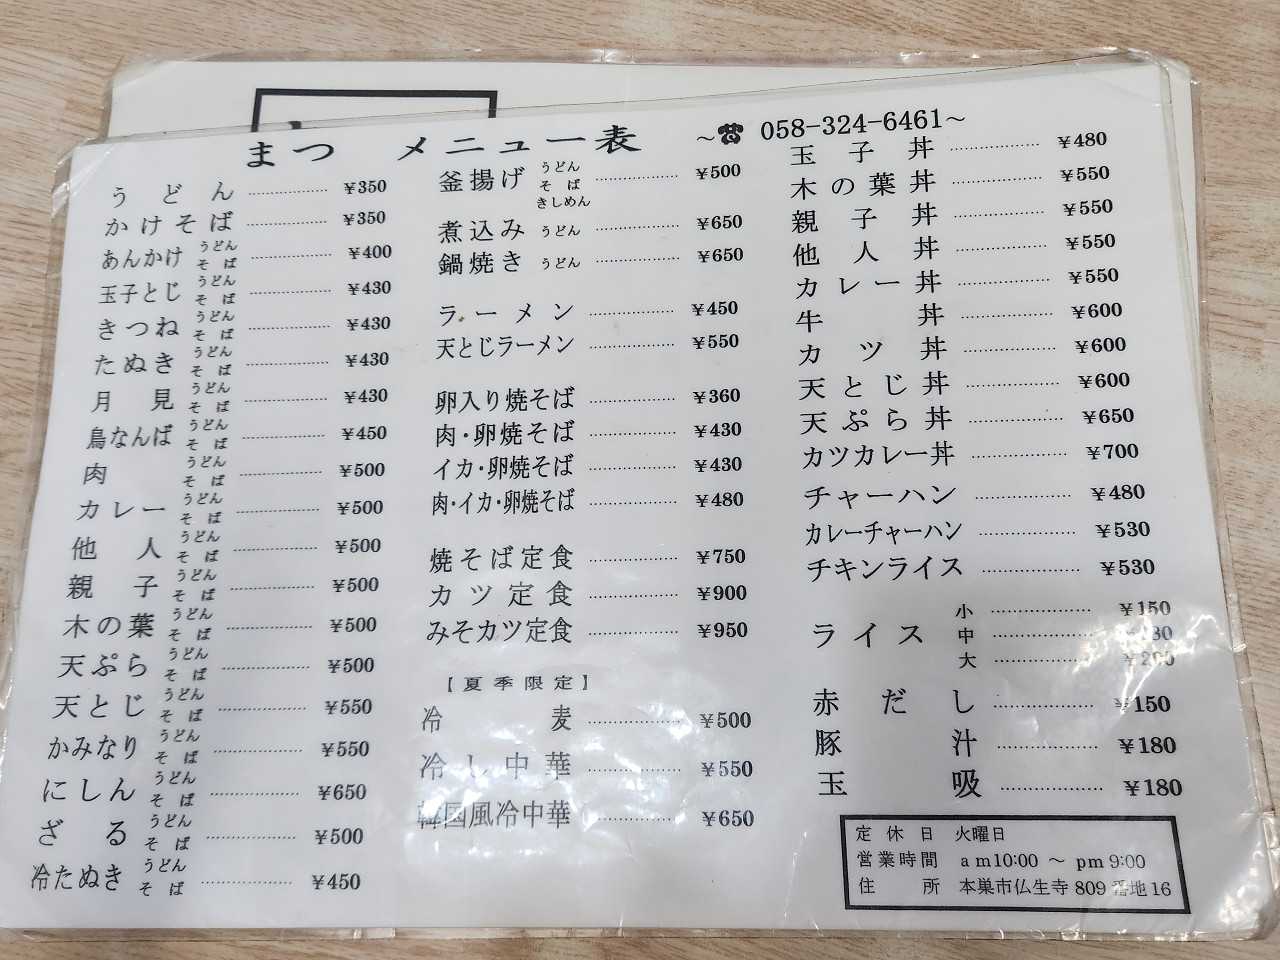 まつ メニュー表 ～☎ 058-324-6461～
うどん ¥350
かけそば ¥350
あんかけ うどん そば ¥400
玉子とじ うどん そば ¥430
きつね うどん そば ¥430
たぬき うどん そば ¥430
月見 うどん そば ¥430
鳥なんば うどん そば ¥450
肉 うどん そば ¥500
カレー うどん そば ¥500
他人 うどん そば ¥500
親子 うどん そば ¥500
木の葉 うどん そば ¥500
天ぷら うどん そば ¥500
天とじ うどん そば ¥550
かみなり うどん そば ¥550
にしん うどん そば ¥650
ざる うどん そば ¥500
冷たぬき うどん そば ¥450
釜揚げ うどん そば きしめん ¥500
煮込み うどん ¥650
鍋焼き うどん ¥650
ラーメン ¥450
天とじラーメン ¥550
卵入り焼そば ¥360
肉・卵焼そば ¥430
イカ・卵焼そば ¥430
肉・イカ・卵焼そば ¥480
焼そば定食 ¥750
カツ定食 ¥900
みそカツ定食 ¥950
【夏季限定】
冷麦 ¥500
冷し中華 ¥550
韓国風冷中華 ¥650
玉子丼 ¥480
木の葉丼 ¥550
親子丼 ¥550
他人丼 ¥550
カレー丼 ¥550
牛丼 ¥600
カツ丼 ¥600
天とじ丼 ¥600
天ぷら丼 ¥650
カツカレー丼 ¥700
チャーハン ¥480
カレーチャーハン ¥530
チキンライス ¥530
ライス 小 ¥150
中
大 ¥200
赤だし ¥150
豚汁 ¥180
玉吸 ¥180
定休日 火曜日
営業時間 am10:00 ～ pm9:00
住所 本巣市仏生寺809番地16